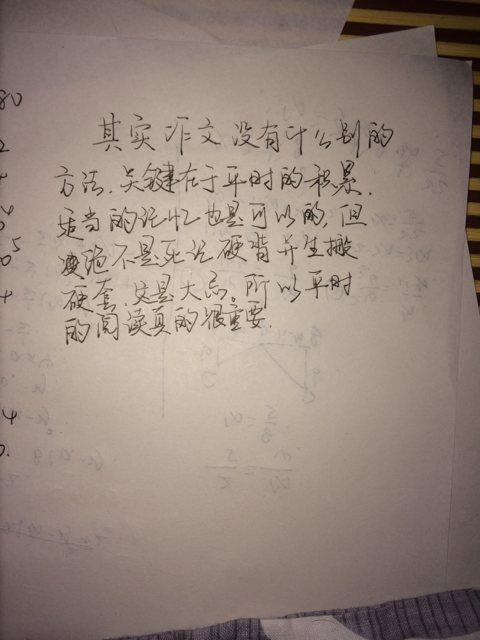 其实作文没有什么别的
方法.关键在于平时的积累.
适当的记忆也是可以的,但
绝不是死记硬背并生搬
硬套.这是大忌。所以平时
的阅读真的很重要.